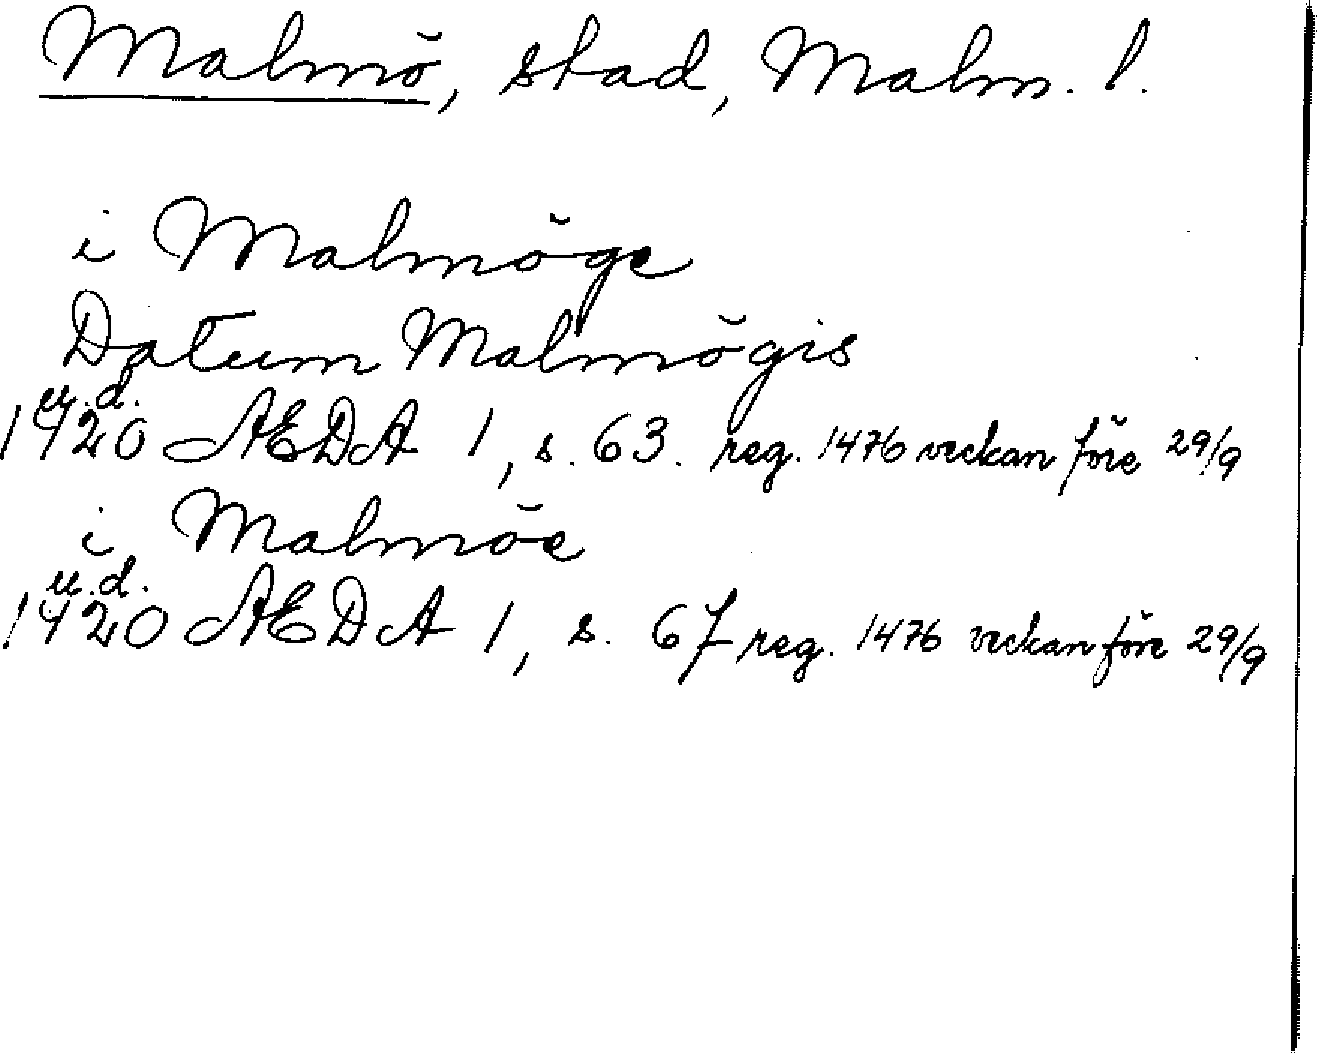 Malmö, stad, Malm. l.
i Malmöge
Datum Malmögis
u.d.
1420 AEDA 1, s. 63. reg. 1476 veckan före 29/9
i Malmöe
u.d.
1420 AEDA 1, s. 67 reg. 1476 veckan före 29/9